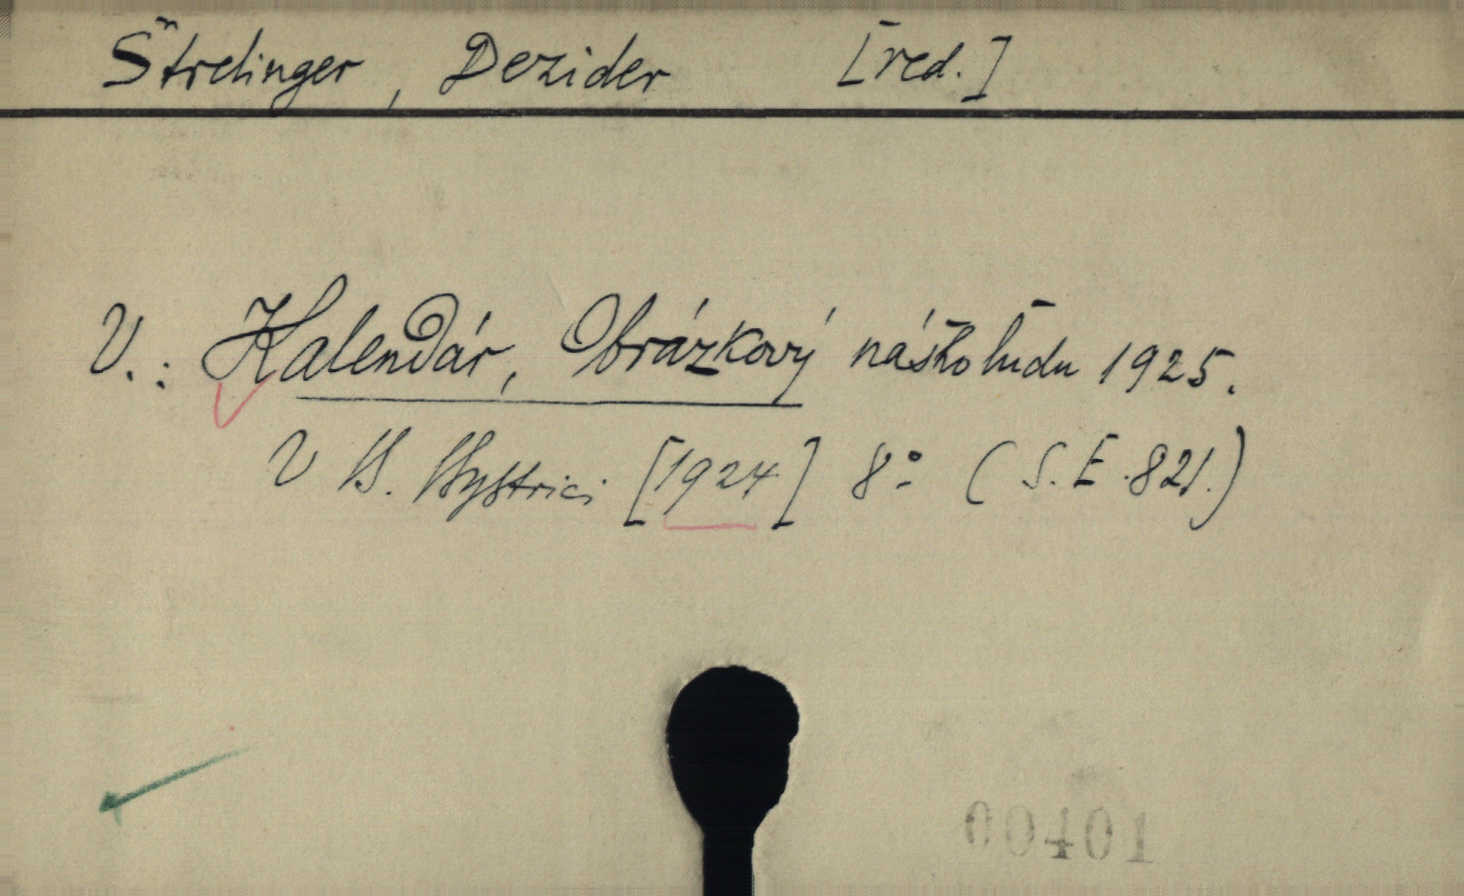 Štrelinger, Dezider [red.]
V.: Kalendár, Obrázkový nášho ľudu 1925.
V B. Bystrici [1924] 8° (S.E.821.)
00401